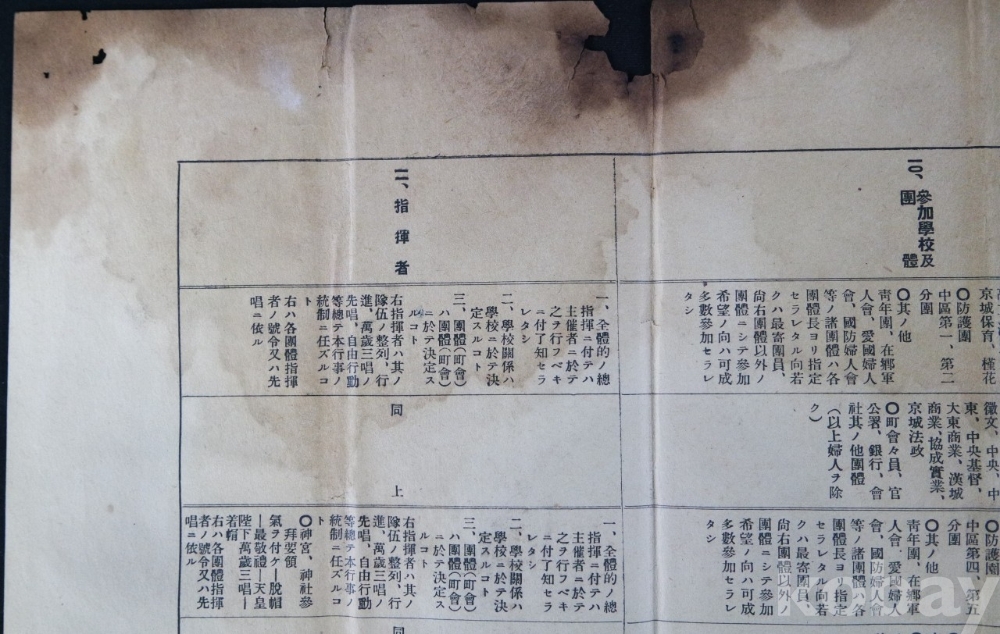 一〇、參加學校及
團體
京城保育、槿花
〇防護團
中區第一、第二
分團
〇其ノ他
靑年團、在鄕軍
人會、愛國婦人
會、國防婦人會
等ノ諸團體ハ各
團體長ヨリ指定
セラレタル向若
クハ最寄團員、
尙右團體以外ノ
團體ニシテ參加
希望ノ向ハ可成
多數參加セラレ
タシ
徽文、中央、中
東、中央基督、
大東商業、漢城
商業、協成實業、
京城法政
〇町會々員、官
公署、銀行、會
社其ノ他團體
(以上婦人ヲ除
ク)
〇防護團
中區第四、第五
分團
〇其ノ他
靑年團、在鄕軍
人會、愛國婦人
會、國防婦人會
等ノ諸團體ハ各
團體長ヨリ指定
セラレタル向若
クハ最寄團員、
尙右團體以外ノ
團體ニシテ參加
希望ノ向ハ可成
多數參加セラレ
タシ
一一、指揮者
一、全體的ノ總
指揮ニ付テハ
主催者ニ於テ
之ヲ行フベキ
ニ付了知セラ
レタシ
二、學校關係ハ
學校ニ於テ決
定スルコト
三、團體(町會)
ハ團體(町會)
ニ於テ決定ス
ルコト
右指揮者ハ其ノ
隊伍ノ整列、行
進、萬歲三唱ノ
先唱、自由行動
等總テ本行事ノ
統制ニ任ズルコ
ト
右ハ各團體指揮
者ノ號令又ハ先
唱ニ依ル
同上
一、全體的ノ總
指揮ニ付テハ
主催者ニ於テ
之ヲ行フベキ
ニ付了知セラ
レタシ
二、學校關係ハ
學校ニ於テ決
定スルコト
三、團體(町會)
ハ團體(町會)
ニ於テ決定ス
ルコト
右指揮者ハ其ノ
隊伍ノ整列、行
進、萬歲三唱ノ
先唱、自由行動
等總テ本行事ノ
統制ニ任ズルコ
ト
〇神宮、神社參
拜要領
氣ヲ付ケ―脫帽
―最敬禮―天皇
陛下萬歲三唱―
着帽
右ハ各團體指揮
者ノ號令又ハ先
唱ニ依ル
同
kobay